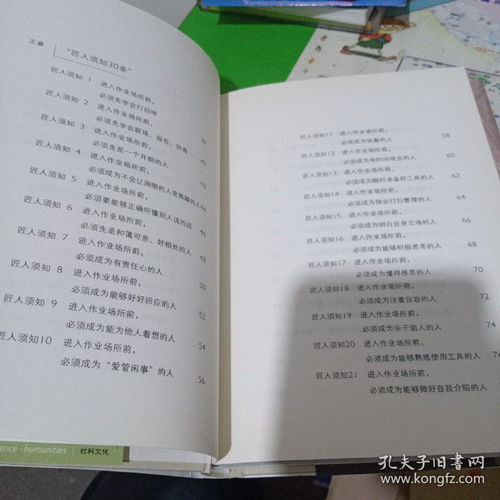 正章
"匠人须知30条"
匠人须知 1 进入作业场所前，
必须先学会打招呼
匠人须知 2 进入作业场所前，
必须先学会联络、报告、协商
匠人须知 3 进入作业场所前，
必须先是一个开朗的人
匠人须知 4 进入作业场所前，
必须成为不会让周围的人变焦躁的人 44
匠人须知 5 进入作业场所前，
必须要能够正确听懂别人说的话
匠人须知 6 进入作业场所前，
必须先是和蔼可亲、好相处的人
匠人须知 7 进入作业场所前，
必须成为有责任心的人 50
匠人须知 8 进入作业场所前，
必须成为能够好好回应的人 52
匠人须知 9 进入作业场所前，
必须成为能为他人着想的人 54
匠人须知10 进入作业场所前，
必须成为“爱管闲事”的人 56
ence · humanities | 社科文化
匠人须知11 进入作业场所前，
必须成为执着的人 58
匠人须知12 进入作业场所前，
必须成为有时间观念的人 60
匠人须知13 进入作业场所前，
必须成为随时准备好工具的人 62
匠人须知14 进入作业场所前，
必须成为很会打扫整理的人 64
匠人须知15 进入作业场所前，
必须成为明白自身立场的人 66
匠人须知16 进入作业场所前，
必须成为能够积极思考的人 68
匠人须知17 进入作业场所前，
必须成为懂得感恩的人 70
匠人须知18 进入作业场所前，
必须成为注重仪容的人 72
匠人须知19 进入作业场所前，
必须成为乐于助人的人 74
匠人须知20 进入作业场所前，
必须成为能够熟练使用工具的人 76
匠人须知21 进入作业场所前，
必须成为能够做好自我介绍的人
孔夫子旧书网
www.kongfz.com